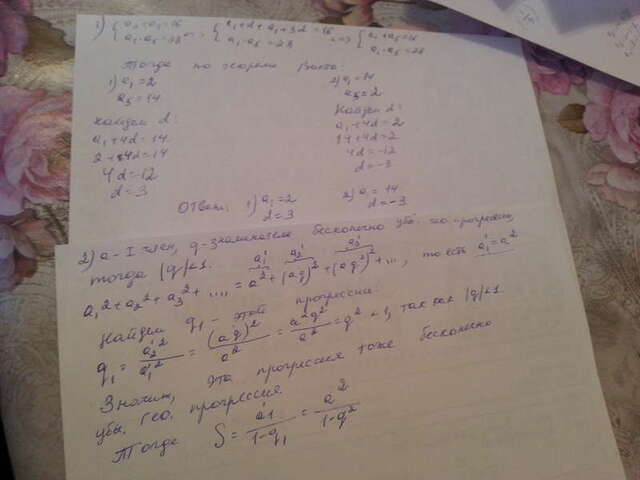 1) { a₂+a₄=16 a₁·a₅=28 <=> { a₁+d+a₁+3d=16 a₁·a₅=28 <=> { a₁+a₅=16 a₁·a₅=28
Тогда по теореме Виета:
1) a₁=2
a₅=14
Найдем d:
a₁+4d=14
2+4d=14
4d=12
d=3
2) a₁=14
a₅=2
Найдем d:
a₁+4d=2
14+4d=2
4d=-12
d=-3
Ответ: 1) a₁=2 d=3 2) a₁=14 d=-3
2) a - I член, q-знаменатель бесконечно убыв. гео. прогрессии,
тогда |q|<1. a₁' a₂' a₃'
a₁²+a₂²+a₃²+....=a²+(aq)²+(aq²)²+..., то есть a₁'=a²
Найдем q₁ - этой прогрессии:
q₁ = a₂'²/a₁'² = (aq)²/a² = a²q²/a² = q² <1, так как |q|<1
Значит, эта прогрессия тоже бесконечно
убы. гео. прогрессия.
Тогда S = a₁'/1-q₁ = a²/1-q²